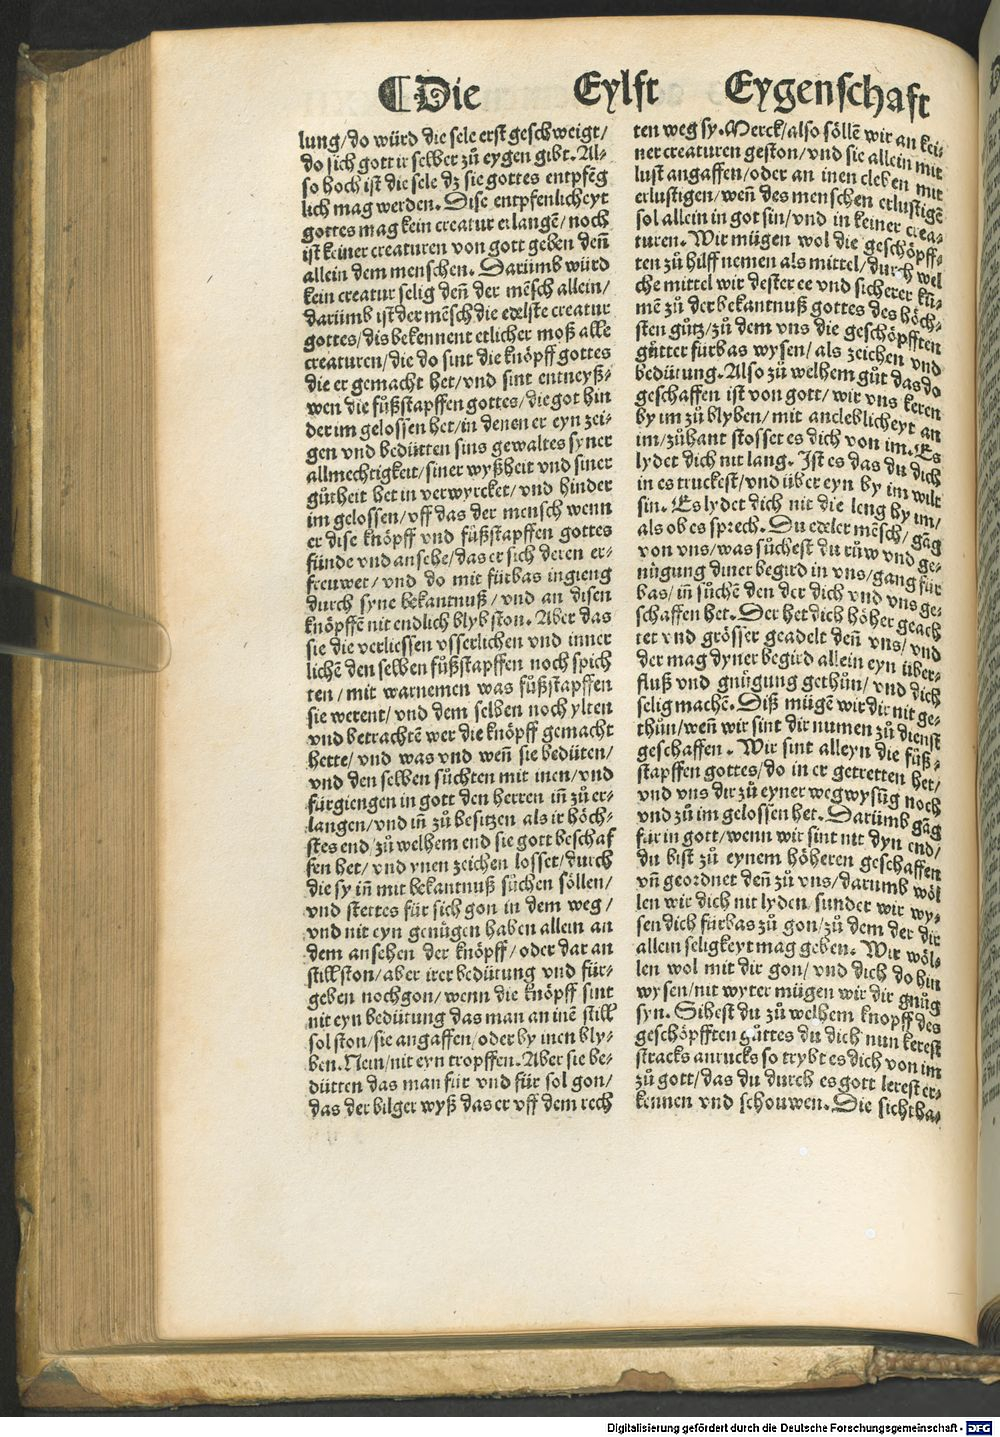 ¶Die Eylft Eygenschaft
lung/do würd die sele erst geschweigt/
do sich gott ir selber zů eygen gibt. Al-
so hoch ist die sele dz sie gottes entpfēg
lich mag werden. Dise entpfenlicheyt
gottes mag kein creatur erlangē/noch
ist keiner creaturen von gott geben deñ
allein dem menschen. Darümb würd
kein creatur selig deñ der mēsch allein/
darümb ist der mēsch die edelste creatur
gottes/dis bekennent etlicher moß alle
creaturen/die do sint die knöpff gottes
die er gemacht het/vnd sint entneyß-
wen die fůßstapffen gottes/die got hin
der im gelossen het/in denen er eyn zei-
gen vnd bedütten sins gewaltes syner
allmechtigkeit/siner wyßheit vnd siner
gůtheit het in verwyrcket/vnd hinder
im gelossen/vff das der mensch wenn
er dise knöpff vnd fůßstapffen gottes
fünde vnd ansehe/das er sich deren er-
freuwet/vnd do mit fürbas ingieng
durch syne bekantnuß/vnd an disen
knöpffē nit endlich blyb ston. Aber das
sie die verliessen vsserlichen vnd inner
lichē den selben fůßstapffen noch spich
ten/mit warnemen was fůßstapffen
sie werent/vnd dem selben noch ylten
vnd betrachtē wer die knöpff gemacht
hette/vnd was vnd weñ sie bedüten/
vnd den selben sůchten mit inen/vnd
fürgiengen in gott den herren iñ zů er-
langen/vnd iñ zů besitzen als ir höch-
stes end/zů welhem end sie gott beschaf
fen het/vnd ynen zeichen losset/durch
die sy iñ mit bekantnuß sůchen söllen/
vnd stettes für sich gon in dem weg/
vnd nit eyn genügen haben allein an
dem ansehen der knöpff/oder dar an
still ston/aber irer bedütung vnd für-
geben noch gon/wenn die knöpff sint
nit eyn bedütung das man an inē still
sol ston/sie angaffen/oder by inen bly-
ben. Nein/nit eyn tropffen. Aber sie be-
dütten das man für vnd für sol gon/
das der bilger wyß das er vff dem rech
ten weg sy. Merck/also söllē wir an kei-
ner creaturen geston/vnd sie allein mit
lust angaffen/oder an inen cleben mit
erlustigen/weñ des menschen erlustigē
sol allein in got sin/vnd in keiner crea-
turen. Wir mügen wol die geschöpff-
ten zů hilff nemen als mittel/durch wel
che mittel wir dester ee vnd sicherer kü-
mē zů der bekantnuß gottes des höch-
sten gůtz/zů dem vns die geschöpfften
gůtter fürbas wysen/als zeichen vnd
bedütung. Also zů welhem gůt das do
geschaffen ist von gott/wir vns keren
by im zů blyben/mit ancleblicheyt an
im/zůhant stosset es dich von im. Es
lydet dich nit lang. Ist es das du dich
in es truckest/vnd über eyn by im wilt
sin. Es lydet dich nit die leng by im/
als ob es sprech. Du edeler mēsch/gāg
von vns/was sůchest du růw vnd ge-
nügung diner begird in vns/gang für
bas/iñ sůchē den der dich vnd vns ge-
schaffen het. Der het dich höher geach
tet vnd grösser geadelt deñ vns/vnd
der mag dyner begird allein eyn über-
fluß vnd gnügung gethůn/vnd dich
selig machē. Diß mügē wir dir nit ge-
thůn/weñ wir sint dir numen zů dienst
geschaffen. Wir sint alleyn die fůß-
stapffen gottes/do in er getretten het/
vnd vns dir zů eyner wegwysūg noch
vnd zů im gelossen het. Darümb gāg
für in gott/wenn wir sint nit dyn end/
du bist zů eynem höheren geschaffen
vñ geordnet deñ zů vns/darumb wöl
len wir dich nit lyden/sunder wir wy-
sen dich fürbas zů gon/zů dem der dir
allein seligkeyt mag geben. Wir wöl-
len wol mit dir gon/vnd dich do hin
wysen/nit wyter mügen wir dir gnůg
syn. Sihest du zů welhem knopff des
geschöpfften gůttes du dich nun kerest
stracks anrucks so trybt es dich von im
zů gott/das du durch es gott lerest er-
kennen vnd schouwen. Die sichtba-
Digitalisierung gefördert durch die Deutsche Forschungsgemeinschaft - DFG